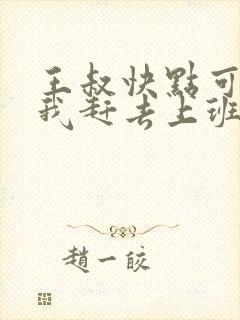 王叔快點可
我赶去上班
趙一皎